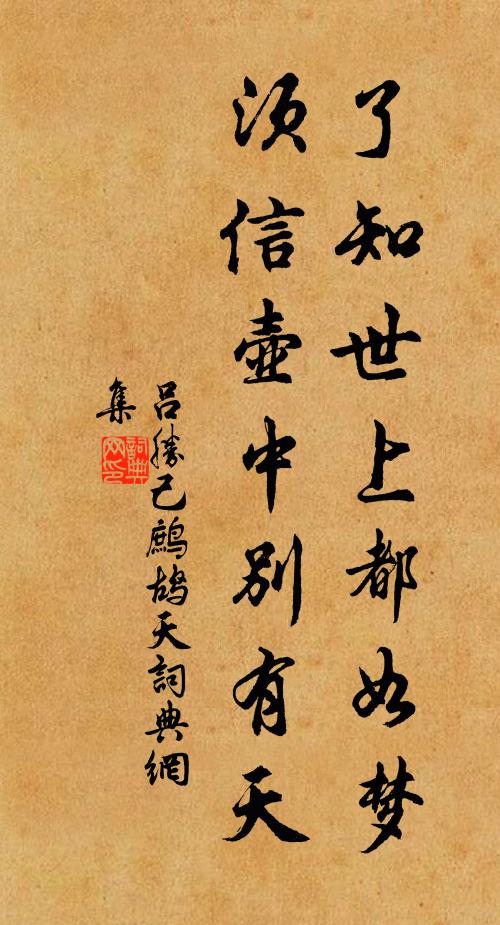 了知世上都如梦
须信壶中别有天
吕胜己鹧鸪天词典網
集